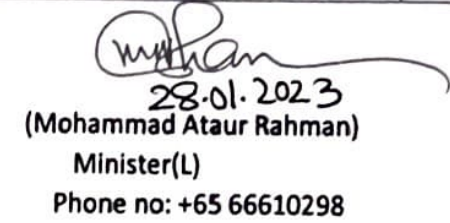 28.01.2023
(Mohammad Ataur Rahman)
Minister(L)
Phone no: +65 66610298